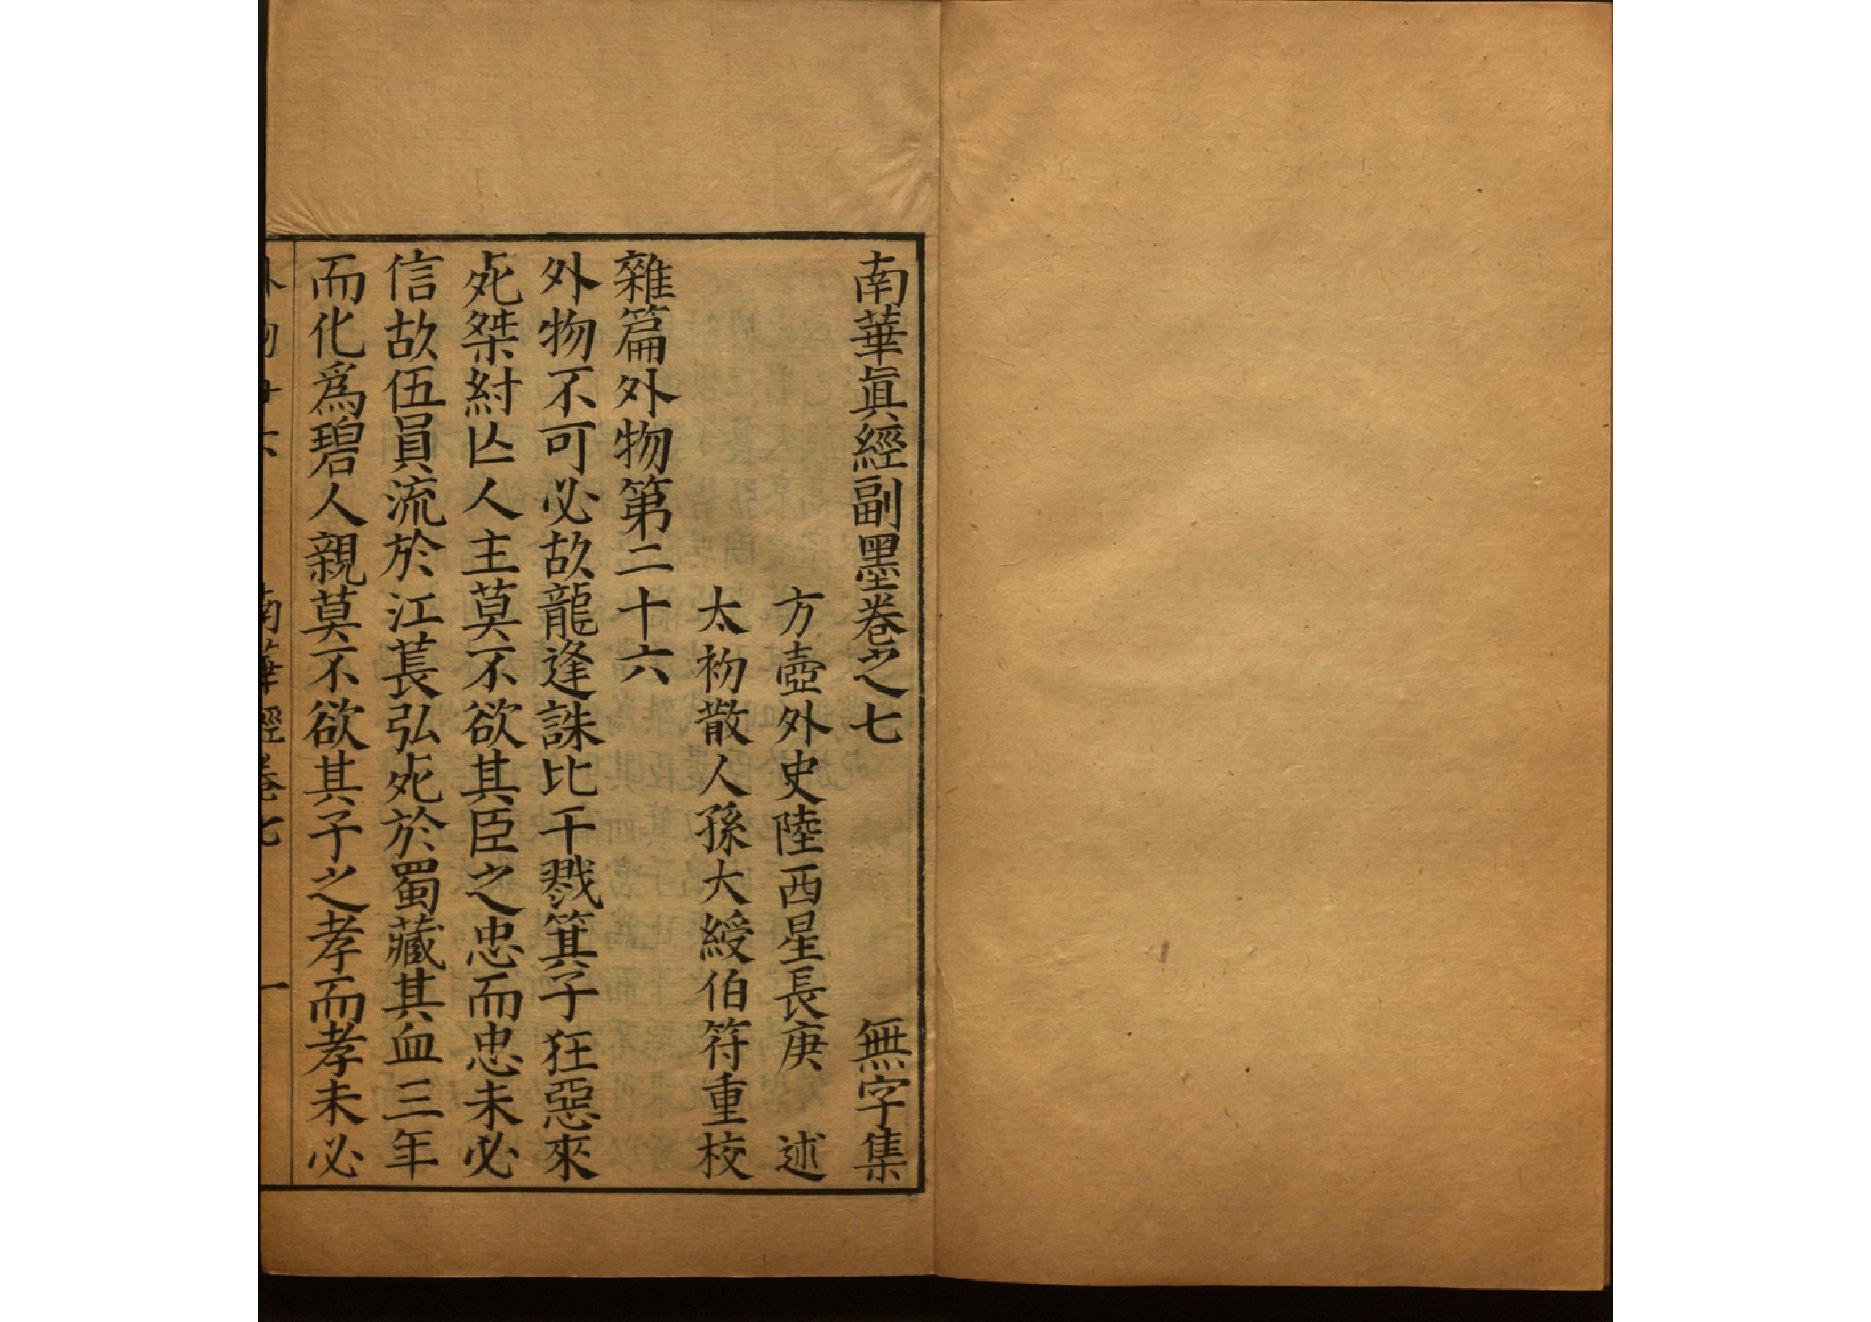 南華眞經副墨卷之七　無字集
方壺外史陸西星長庚　述
太初散人孫大綬伯符重校
雜篇外物第二十六
外物不可必故龍逢誅比干戮箕子狂惡來
死桀紂亾人主莫不欲其臣之忠而忠未必
信故伍員流於江萇弘死於蜀藏其血三年
而化爲碧人親莫不欲其子之孝而孝未必
南華經卷七　一